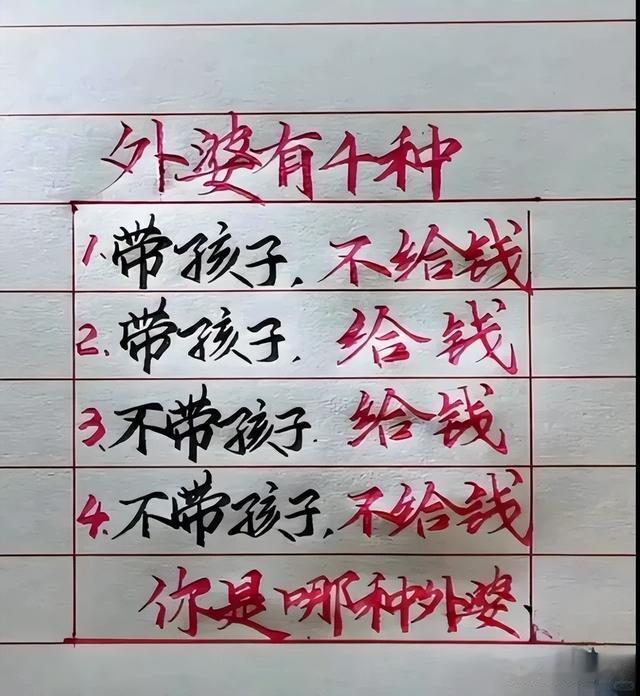 外婆有4种
1.带孩子,不给钱
2.带孩子,给钱
3.不带孩子.给钱
4.不带孩子,不给钱
你是哪种外婆